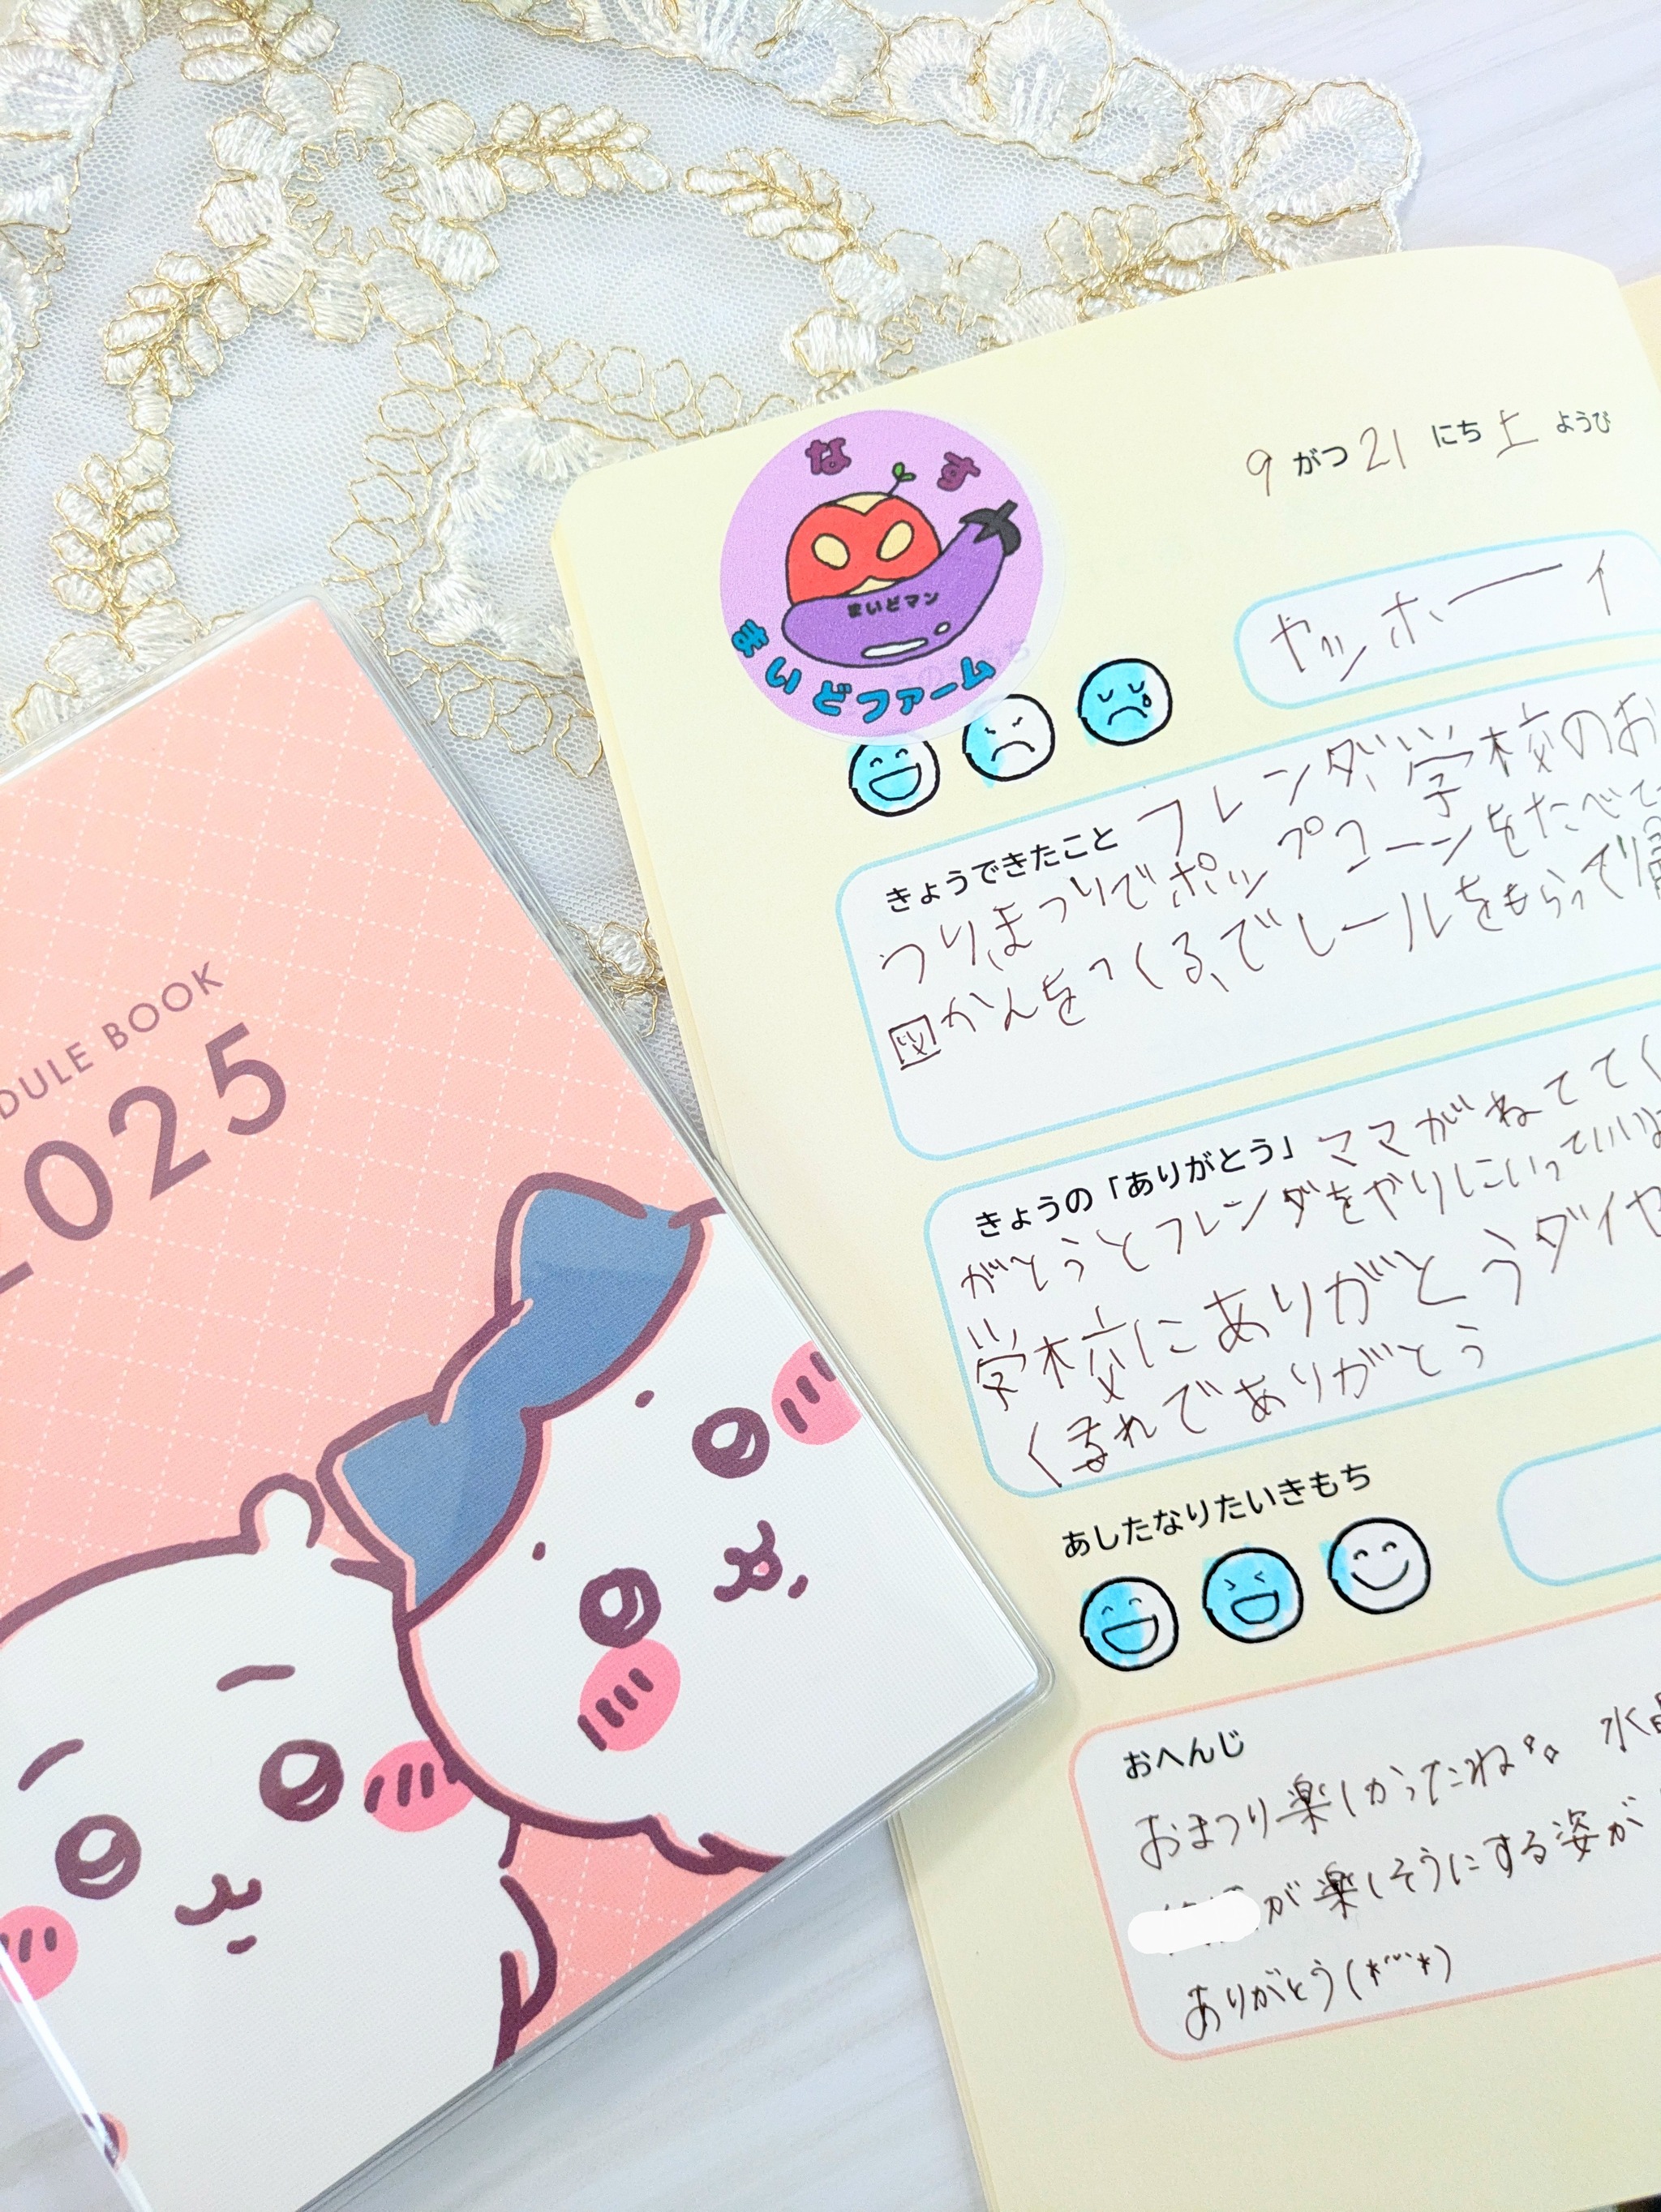 DULE BOOK
2025
なす
まいどマン
まいどファーム
9 がつ 21 にち 土 ようび
ヤッホーーイ
きょうできたこと フレンダ学校のお
つりまつりでポップコーンをたべて
図かんをつくる、でレールをもらって帰
きょうの「ありがとう」 ママがねてて
がとうとフレンダをやりにいっていい
学校にありがとうダイヤ
くまれてありがとう
あしたなりたいきもち
おへんじ
おまつり楽しかったね 水
が楽しそうにする姿が
ありがとう(*¨*)